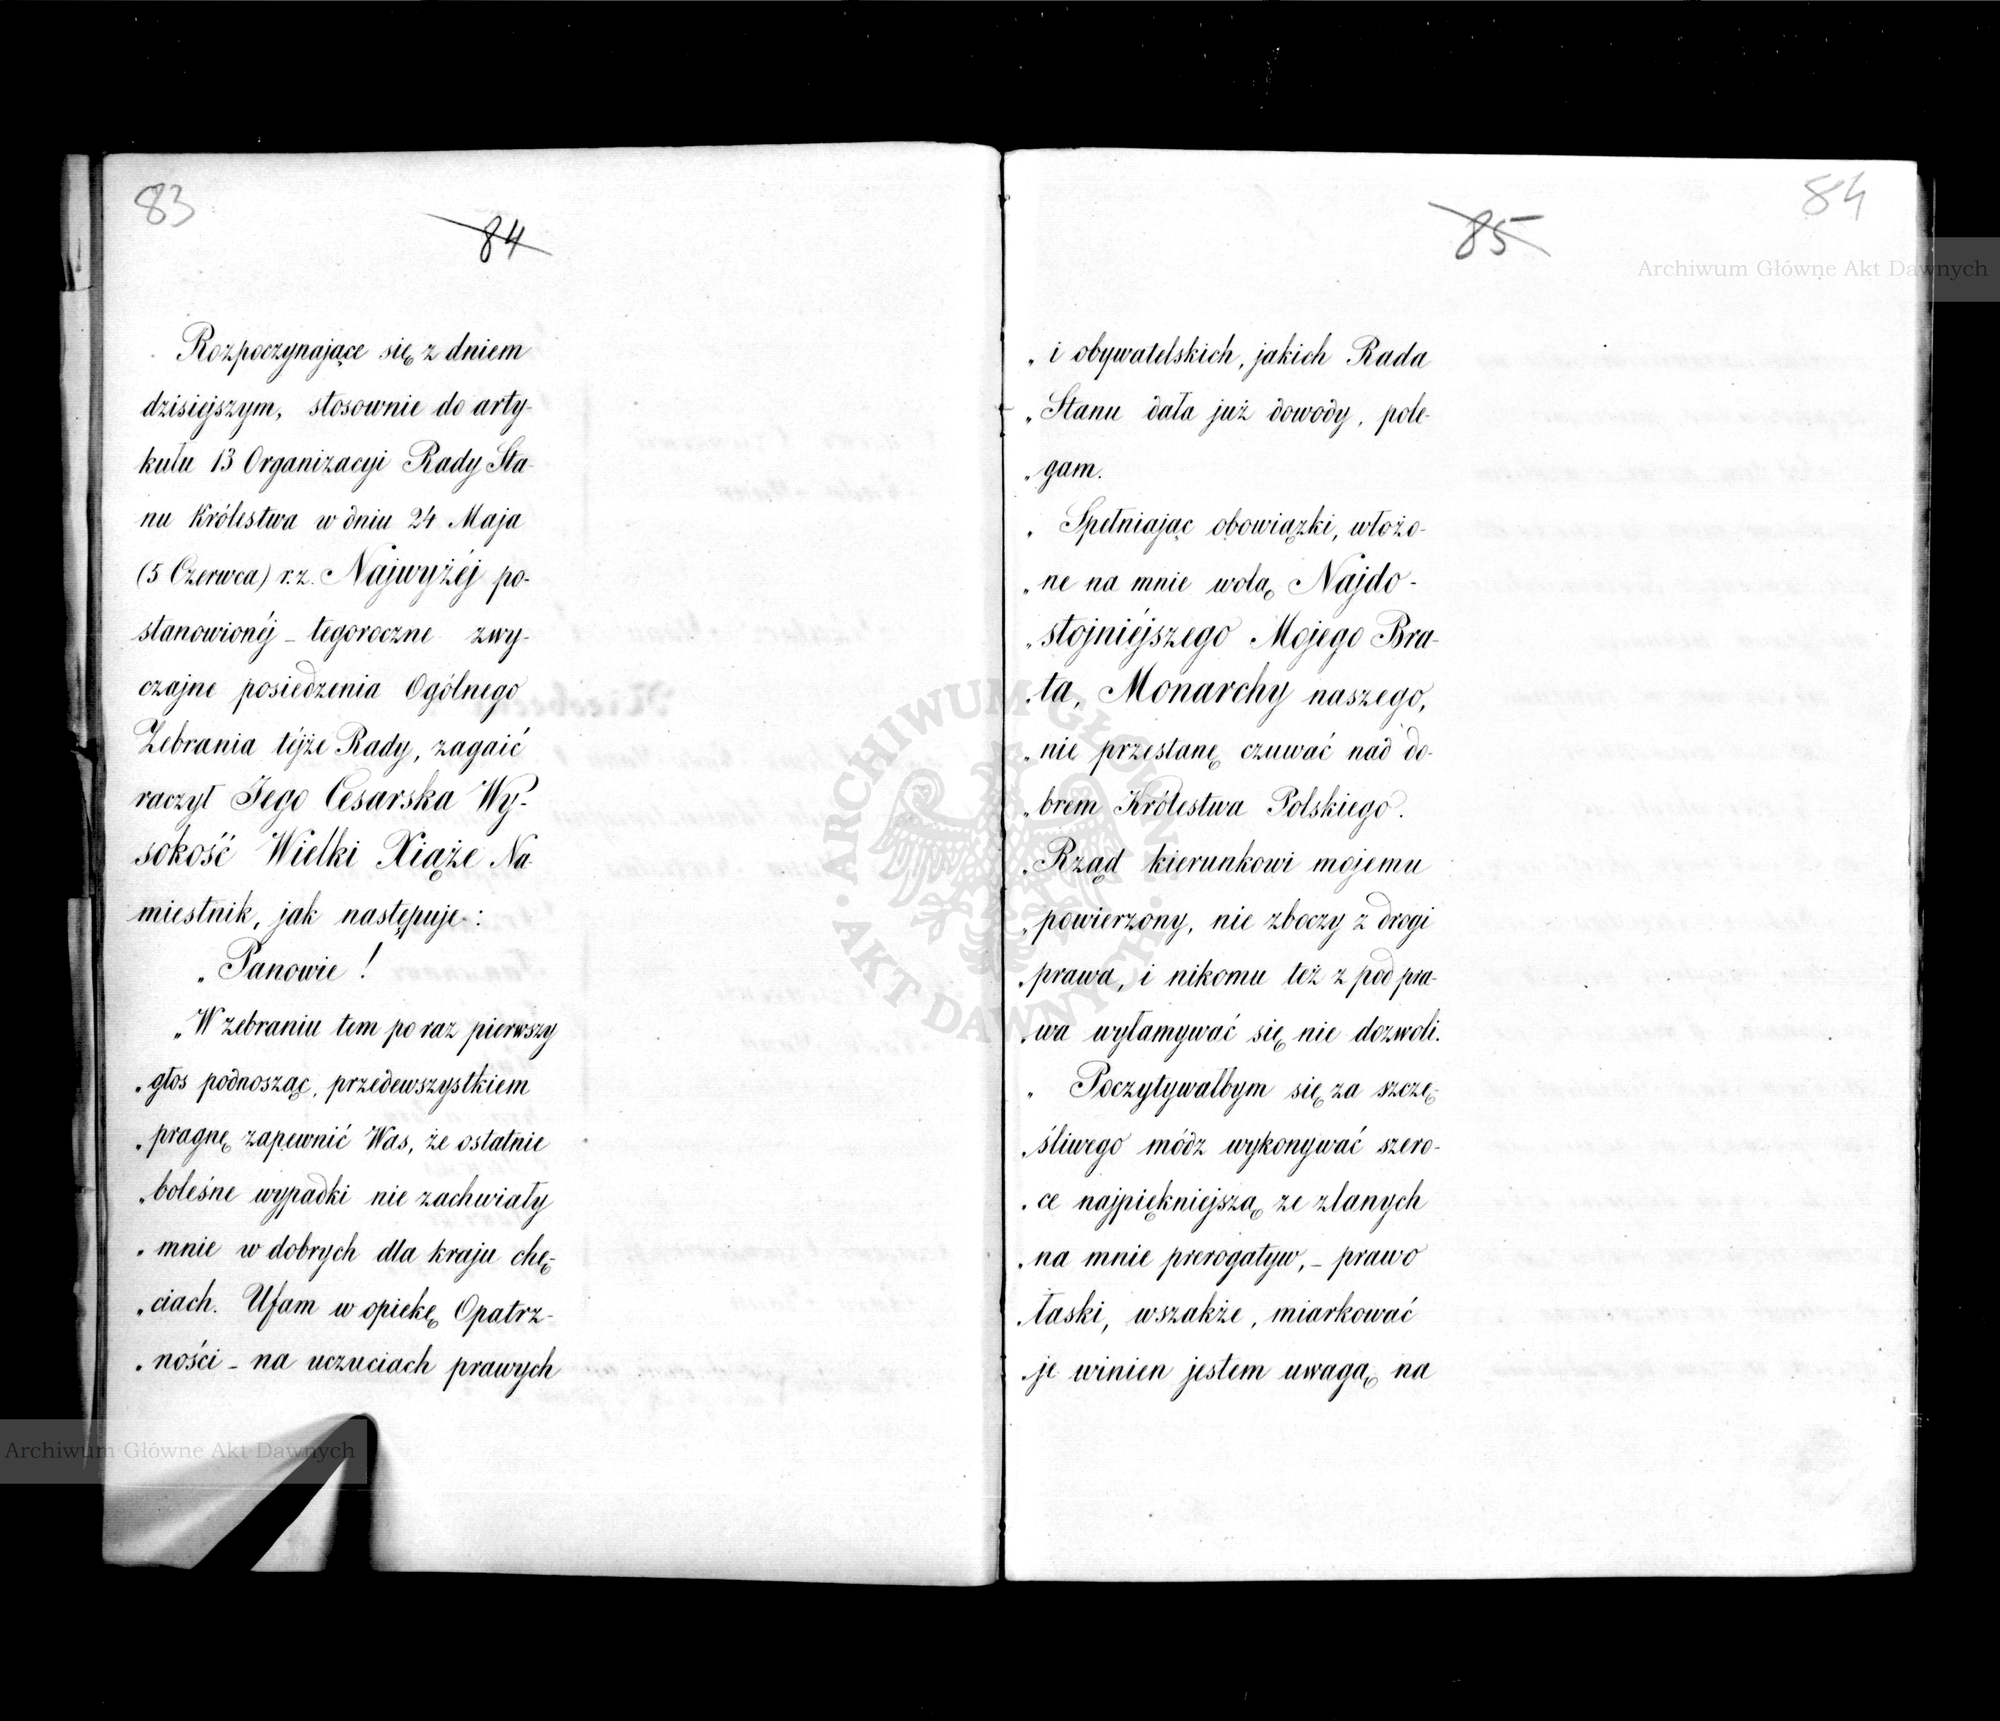 83
84
Rozpoczynające się z dniem
dzisiejszym, stosownie do arty-
kułu 13 Organizacyi Rady Sta-
nu Królestwa w dniu 24 Maja
(5 Czerwca) r.z. Najwyżéj po-
stanowionéj – tegoroczne zwy-
czajne posiedzenia Ogólnego
Zebrania téjże Rady, zagaić
raczył Jego Cesarska Wy-
sokość Wielki Xiąże Na-
miestnik, jak następuje:
„Panowie!
„W zebraniu tem po raz pierwszy
„głos podnosząc, przedewszystkiem
„pragnę zapewnić Was, że ostatnie
„boleśne wypadki nie zachwiały
„mnie w dobrych dla kraju chę-
„ciach. Ufam w opiekę Opatrz-
„ności – na uczuciach prawych
84
85
„i obywatelskich, jakich Rada
„Stanu dała już dowody, pole-
„gam.
„Spełniając obowiązki, włożo-
„ne na mnie wolą Najdo-
„stojniéjszego Mojego Bra-
„ta, Monarchy naszego,
„nie przestanę czuwać nad do-
„brem Królestwa Polskiego.
„Rząd kierunkowi mojemu
„powierzony, nie zboczy z drogi
„prawa, i nikomu też z pod pra-
„wa wyłamywać się nie dozwoli.
„Poczytywałbym się za szczę-
„śliwego módz wykonywać szero-
„ce najpiękniejszą ze zlanych
„na mnie prerogatyw, – prawo
„łaski, wszakże, miarkować
„je winien jestem uwagą na
Archiwum Główne Akt Dawnych
Archiwum Główne Akt Dawnych
ARCHIWUM GŁÓWNE AKT DAWNYCH